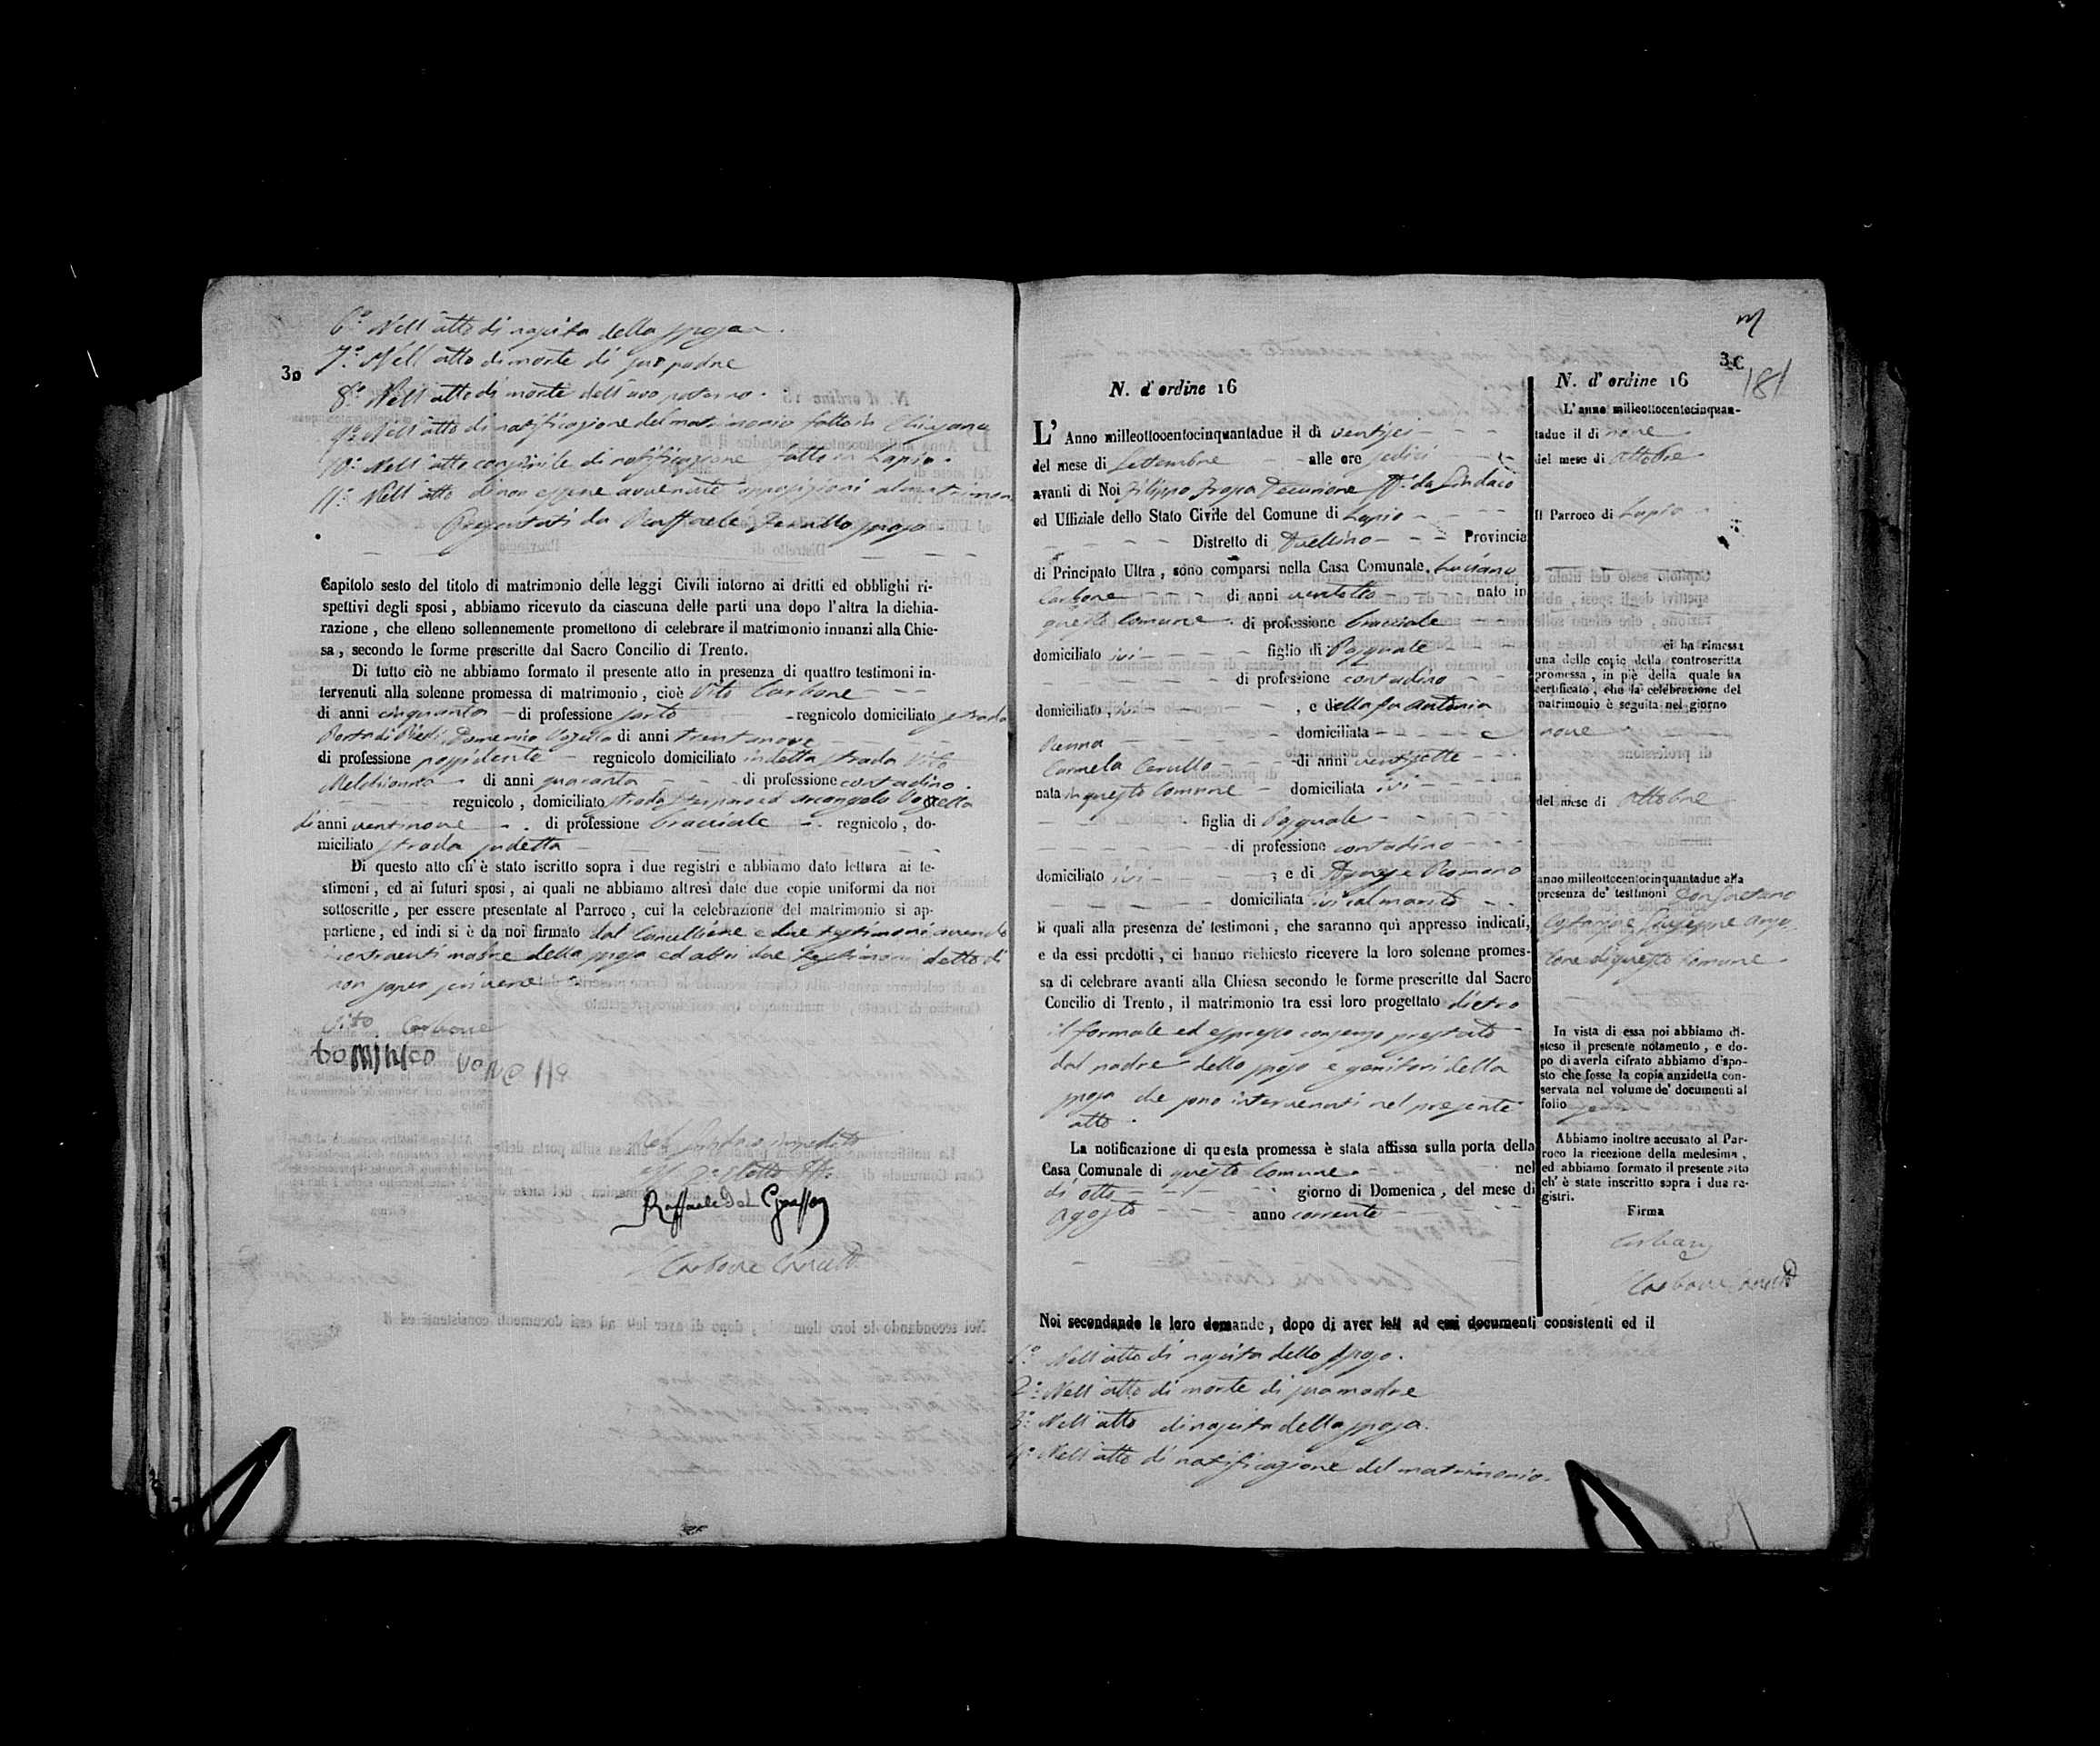 6.° Nell'atto di nascita della sposa.
7.° Nell'atto di morte di suo padre
30
8.° Nell'atto di morte dell'avo paterno.
9.° Nell'atto di notificazione del matrimonio fatto in
10.° Nell'atto consimile di notificazione fatto in Lapio.
11.° Nell'atto di non essere avvenute opposizioni al matrimon
Presentati da Raffaele sposo
Capitolo sesto del titolo di matrimonio delle leggi Civili intorno ai dritti ed obblighi ri-
spettivi degli sposi, abbiamo ricevuto da ciascuna delle parti una dopo l'altra la dichia-
razione, che elleno sollennemente promettono di celebrare il matrimonio innanzi alla Chie-
sa, secondo le forme prescritte dal Sacro Concilio di Trento.
Di tutto ciò ne abbiamo formato il presente atto in presenza di quattro testimoni in-
tervenuti alla solenne promessa di matrimonio, cioè Vito Carbone
di anni cinquanta di professione sarto regnicolo domiciliato strada
Domenico di anni trentanove
di professione possidente regnicolo domiciliato in detta strada Vito
di anni quaranta di professione contadino.
regnicolo, domiciliato strada ed Arcangelo
di anni ventinove di professione bracciale regnicolo, do-
miciliato strada sudetta
Di questo atto ch'è stato iscritto sopra i due registri e abbiamo dato lettura ai te-
stimoni, ed ai futuri sposi, ai quali ne abbiamo altresì date due copie uniformi da noi
sottoscritte, per essere presentate al Parroco, cui la celebrazione del matrimonio si ap-
partiene, ed indi si è da noi firmato dal Cancelliere e due testimoni avendo
i contraenti madre della sposa ed altri due testimoni detto di
non saper scrivere
Vito Carbone
DOMINICO
Pel Sindaco impedito
Raffaele
Carbone
30
181
N. d'ordine 16
L'Anno milleottocentocinquantadue il dì ventisei
del mese di Settembre alle ore sedici
avanti di Noi Filippo Decurione ff. da Sindaco
ed Uffiziale dello Stato Civile del Comune di Lapio
Distretto di Avellino Provincia
di Principato Ultra, sono comparsi nella Casa Comunale, Luciano
Carbone di anni ventotto nato in
questo Comune di professione bracciale
domiciliato ivi figlio di Pasquale
di professione contadino
domiciliato, ivi, e della fu Antonia
domiciliata e
Carmela Cerullo di anni ventisette
nata in questo Comune domiciliata ivi
figlia di Pasquale
di professione contadino
domiciliato ivi; e di Agnese Romano
domiciliata ivi col marito
li quali alla presenza de' testimoni, che saranno quì appresso indicati,
e da essi prodotti, ci hanno richiesto ricevere la loro solenne promes-
sa di celebrare avanti alla Chiesa secondo le forme prescritte dal Sacro
Concilio di Trento, il matrimonio tra essi loro progettato dietro
il formale ed espresso consenso prestato
dal padre dello sposo e genitori della
sposa che sono intervenuti nel presente
atto.
La notificazione di questa promessa è stata affissa sulla porta della
Casa Comunale di questo Comune nel
dì otto giorno di Domenica, del mese di
Agosto anno corrente
N. d'ordine 16
L'anno milleottocentocinquan-
tadue il dì nove
del mese di Ottobre
Il Parroco di Lapio
ci ha rimessa
una delle copie della controscritta
promessa, in piè della quale ha
certificato, che la celebrazione del
matrimonio è seguita nel giorno
nove
del mese di Ottobre
anno milleottocentocinquantadue alla
presenza de' testimoni Don Gaetano
Giuseppe
di questo Comune
In vista di essa noi abbiamo di-
steso il presente notamento, e do-
po di averla cifrato abbiamo dispo-
sto che fosse la copia anzidetta con-
servata nel volume de' documenti al
folio
Abbiamo inoltre accusato al Par-
roco la ricezione della medesima,
ed abbiamo formato il presente atto
ch'è stato inscritto sopra i due re-
gistri.
Firma
Carbone
Noi secondando le loro demande, dopo di aver letti ad essi documenti consistenti ed il
1.° Nell'atto di nascita dello sposo.
2.° Nell'atto di morte di sua madre
3.° Nell'atto di nascita della sposa.
4.° Nell'atto di notificazione del matrimonio.